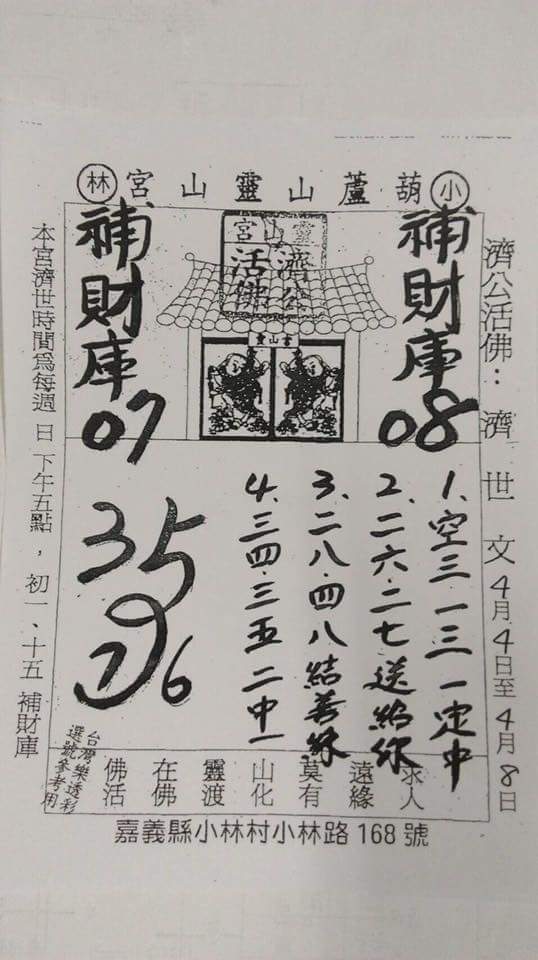 小葫蘆山靈山宮林
濟公活佛：濟世文4月4日至4月8日
補財庫08
靈山宮
濟公
活佛
補財庫07
1、空三一三一定中
2、二六、二七送給你
3、二八、四八結善緣
4、三四、三五二中一
35
6
求人
遠緣
莫有
山化
靈渡
在佛
佛活
台灣樂透彩
選號參考用
本宮濟世時間為每週日下午五點，初一、十五補財庫
嘉義縣小林村小林路168號